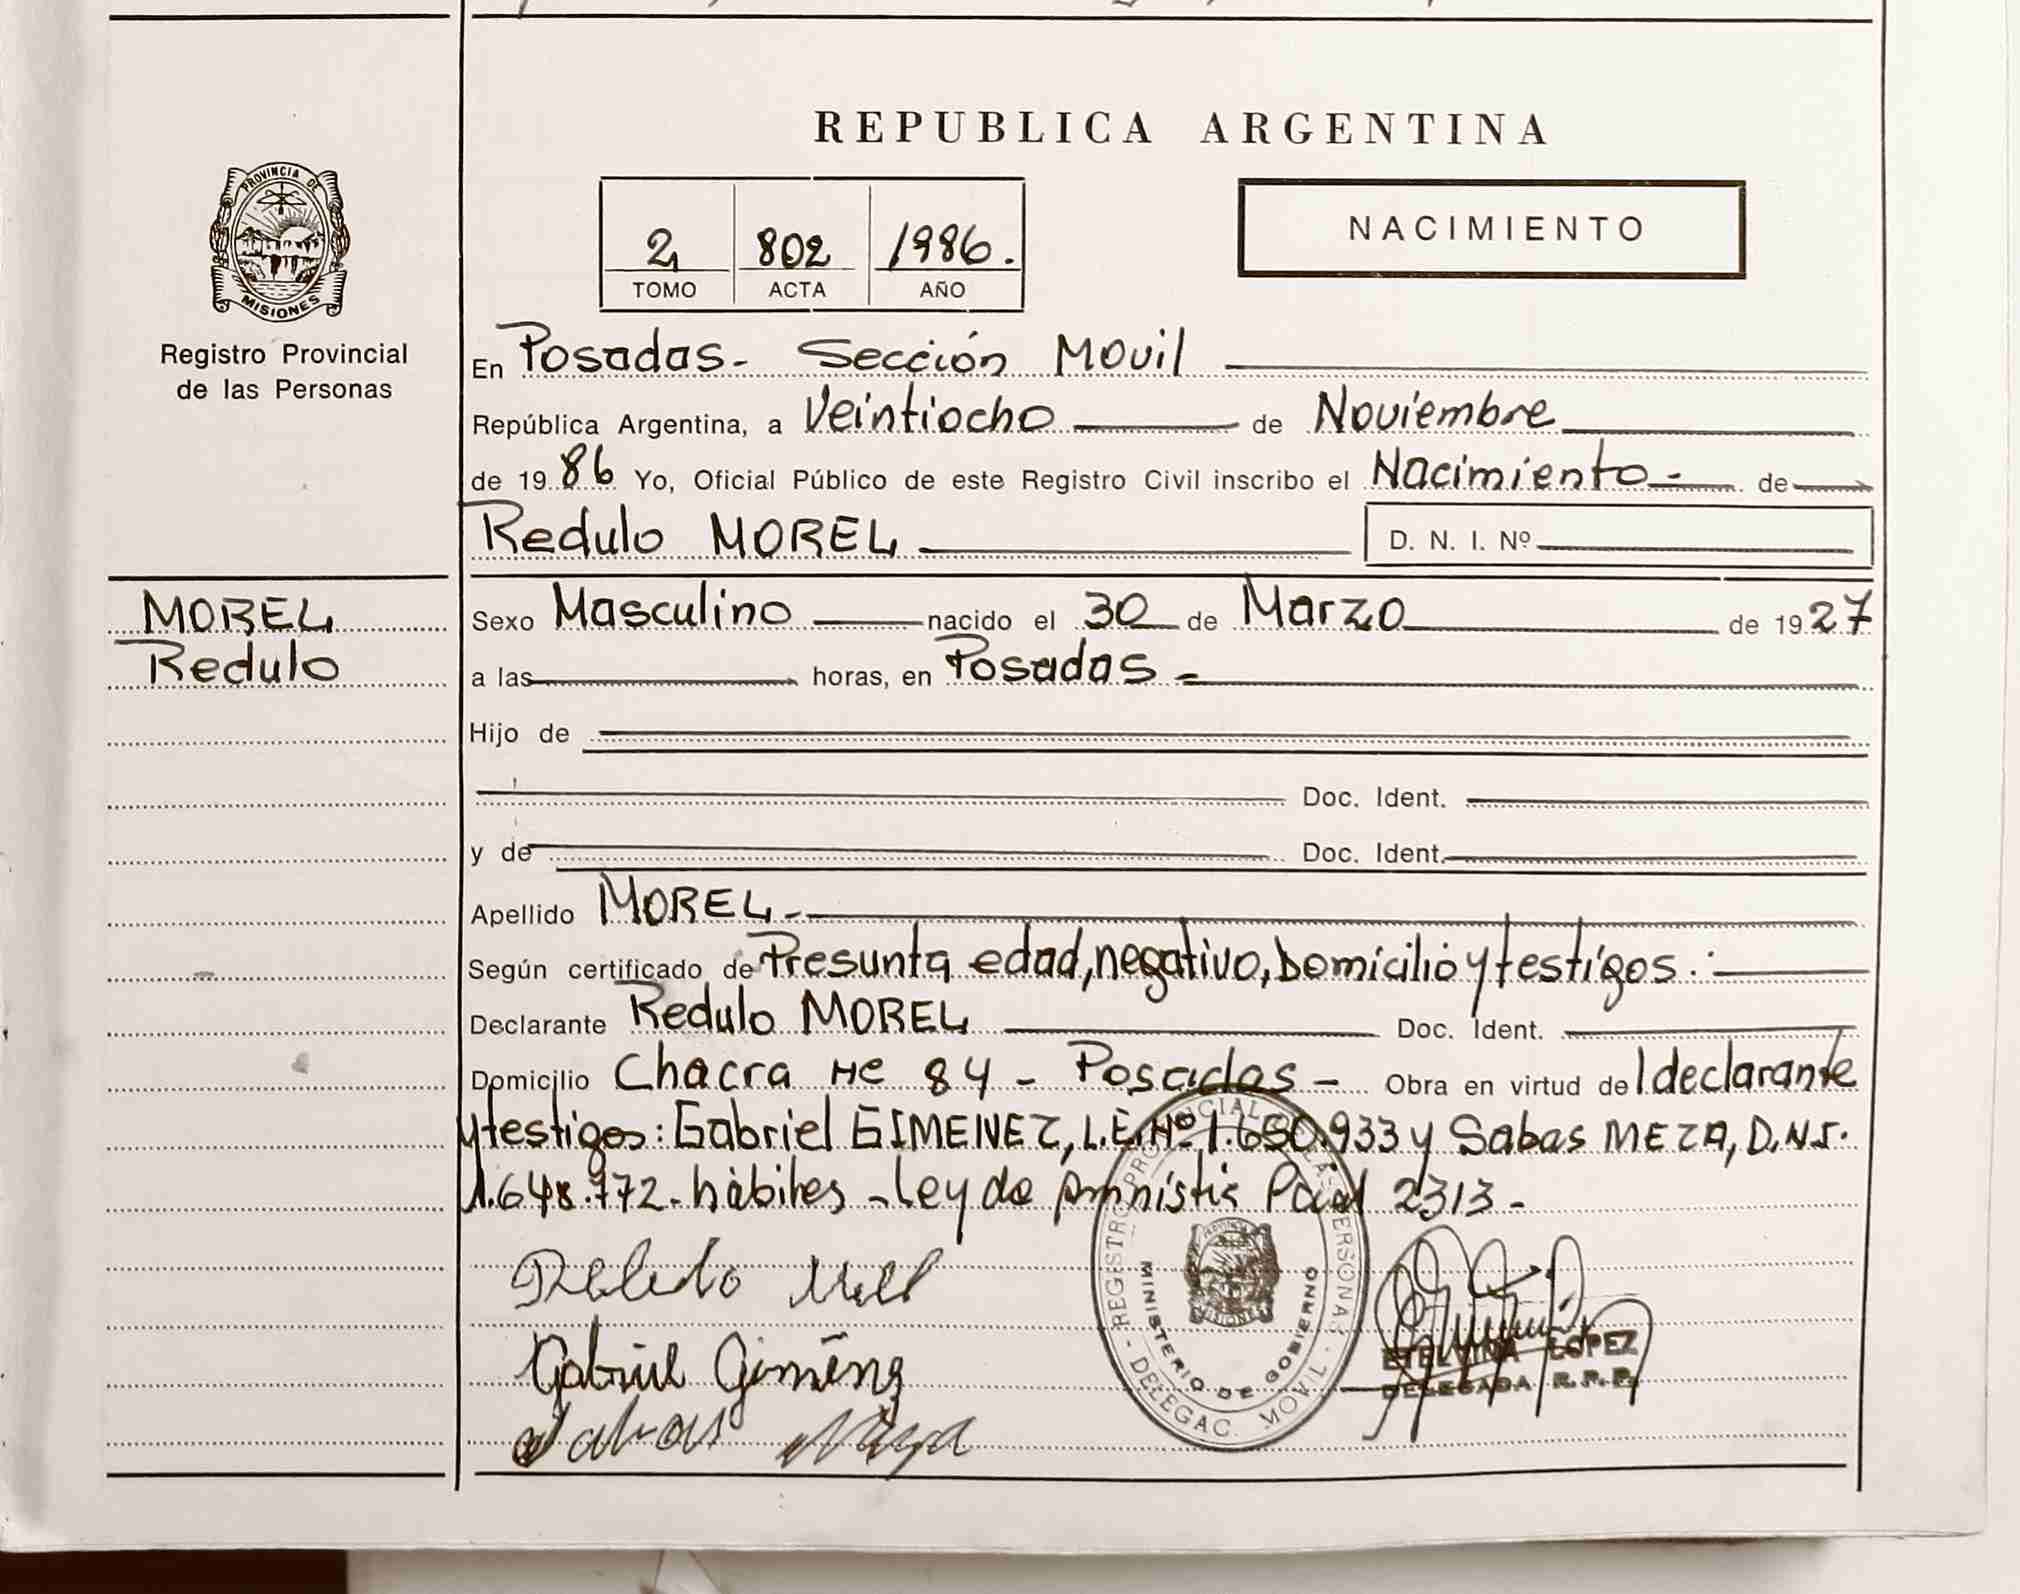 REPUBLICA ARGENTINA
PROVINCIA DE
MISIONES
Registro Provincial
de las Personas
2 802 1986.
TOMO ACTA AÑO
NACIMIENTO
En Posadas- Sección Movil
República Argentina, a Veintiocho de Noviembre
de 1986 Yo, Oficial Público de este Registro Civil inscribo el Nacimiento- de
Redulo MOREL D. N. I. Nº
MOREL
Redulo
Sexo Masculino nacido el 30 de Marzo de 1927
a las horas, en Posadas -
Hijo de
Doc. Ident.
y de Doc. Ident.
Apellido MOREL-
Según certificado de Presunta edad, negativo, Domicilio y testigos.-
Declarante Redulo MOREL Doc. Ident.
Domicilio Chacra Nº 84 - Posadas - Obra en virtud de l declarante
y testigos: Gabriel GIMENEZ, L.E. Nº 1.650.933 y Sabas MEZA, D.N.I.
1.648.772- hábiles - Ley de Amnistia Pcial 2313 -
Gabriel Gimēnez
Sabas
REGISTRO PROVINCIAL DE LAS PERSONAS
MINISTERIO DE GOBIERNO
DELEGAC. MOVIL
ETELVINA LOPEZ
DELEGADA R.P.P.